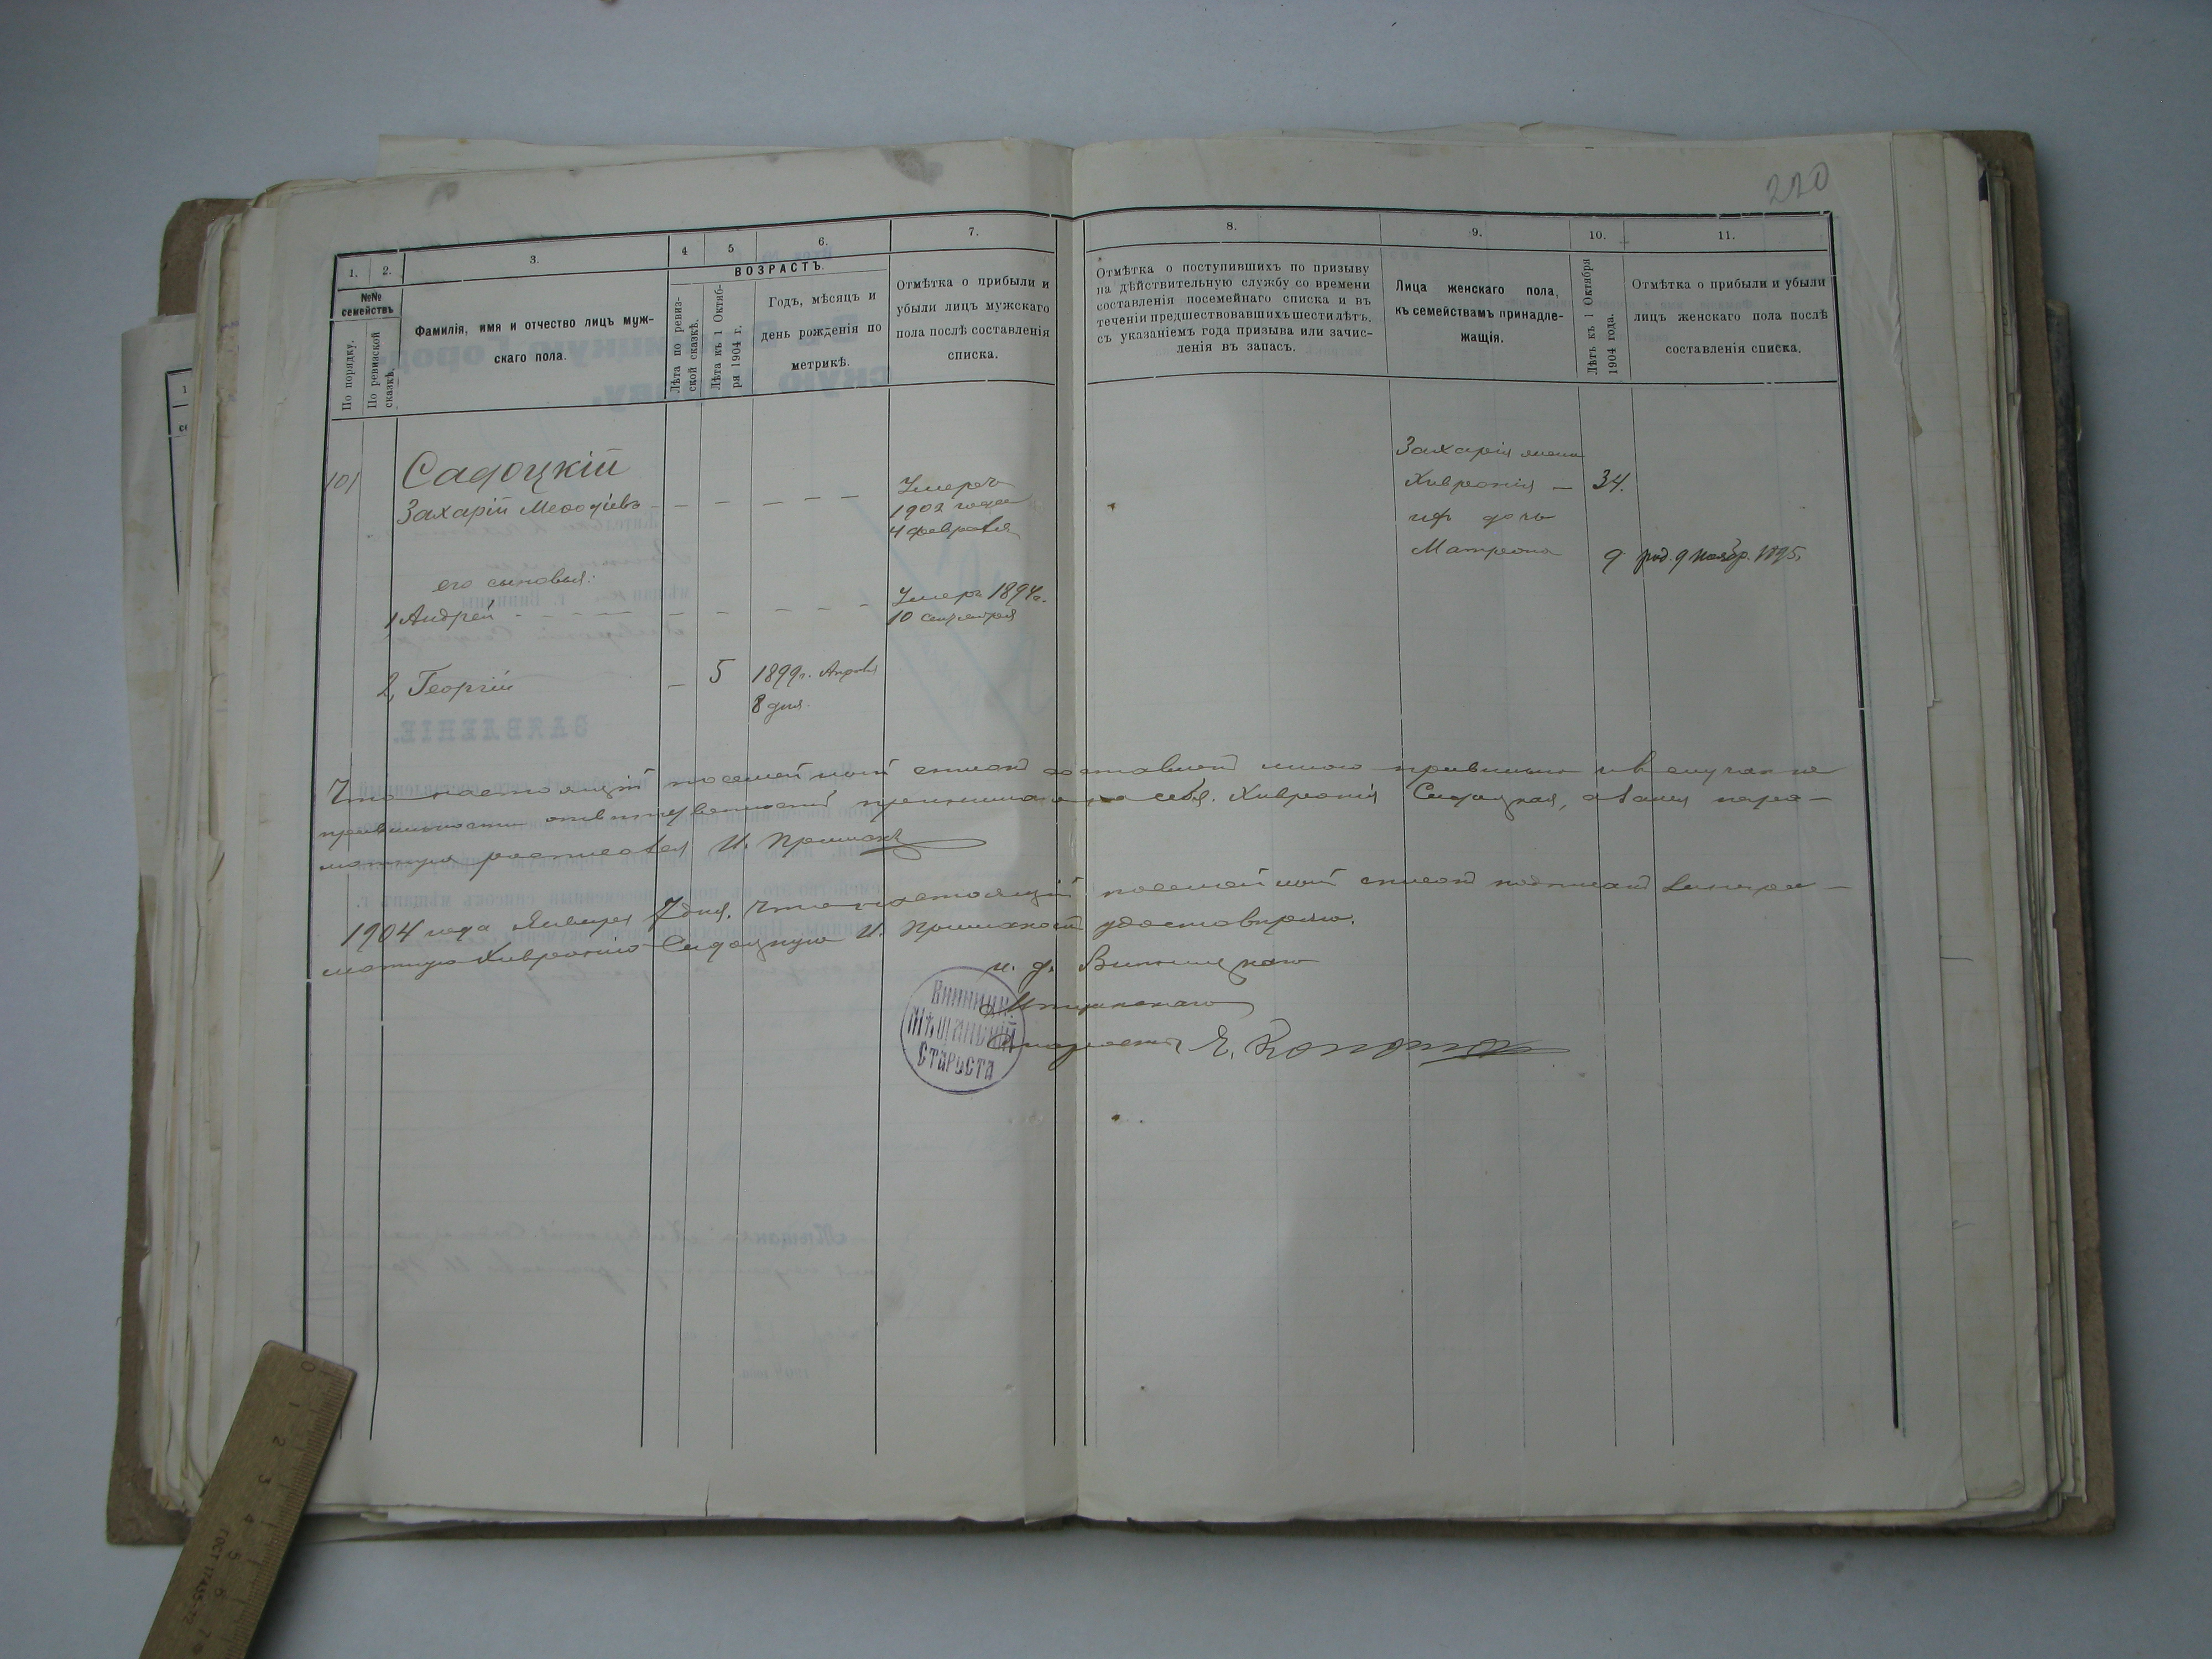 220
1.
2.
3.
4
5
6.
7.
8.
9.
10.
11.
№№ семействъ
По порядку.
По ревизской сказкѣ.
Фамилія, имя и отчество лицъ муж-
скаго пола.
ВОЗРАСТЪ.
Лѣта по ревиз-
ской сказкѣ.
Лѣта къ 1 Октяб-
ря 1904 г.
Годъ, мѣсяцъ и
день рожденія по
метрикѣ.
Отмѣтка о прибыли и
убыли лицъ мужскаго
пола послѣ составленія
списка.
Отмѣтка о поступившихъ по призыву
на дѣйствительную службу со времени
составленія посемейнаго списка и въ
теченіи предшествовавшихъ шести лѣтъ,
съ указаніемъ года призыва или зачис-
ленія въ запасъ.
Лица женскаго пола,
къ семействамъ принадле-
жащія.
Лѣтъ къ 1 Октября
1904 года.
Отмѣтка о прибыли и убыли
лицъ женскаго пола послѣ
составленія списка.
101
Садоцкій
Захарій Меѳодіевъ
Умеръ
1902 года
4 февраля
Захарія жена
Хивронія — 34.
ихъ дочь
Матрона 9 род. 9 ноябр. 1895.
его сыновья:
1 Андрей
Умеръ 1894 г.
10 сентября
2, Георгій — 5 1899 г. Апрѣля
8 дня.
Что настоящій посемейный списокъ составленъ мною правильно и въ случаѣ не
правильности отвѣтственность принимаю на себя. Хивронія Садоцкая, а за нея негра-
мотную росписался И. Примакъ
1904 года Января 7 дня. Что настоящій посемейный списокъ подписанъ за негра-
мотную Хивронію Садоцкую И. Примакомъ удостовѣряю.
и. д. Винницкаго
Мѣщанскаго
Старосты
ВИННИЦК.
МѢЩАНСКІЙ
СТАРОСТА
0 1 2 3 4 5 6 7
ГОСТ 17435-72